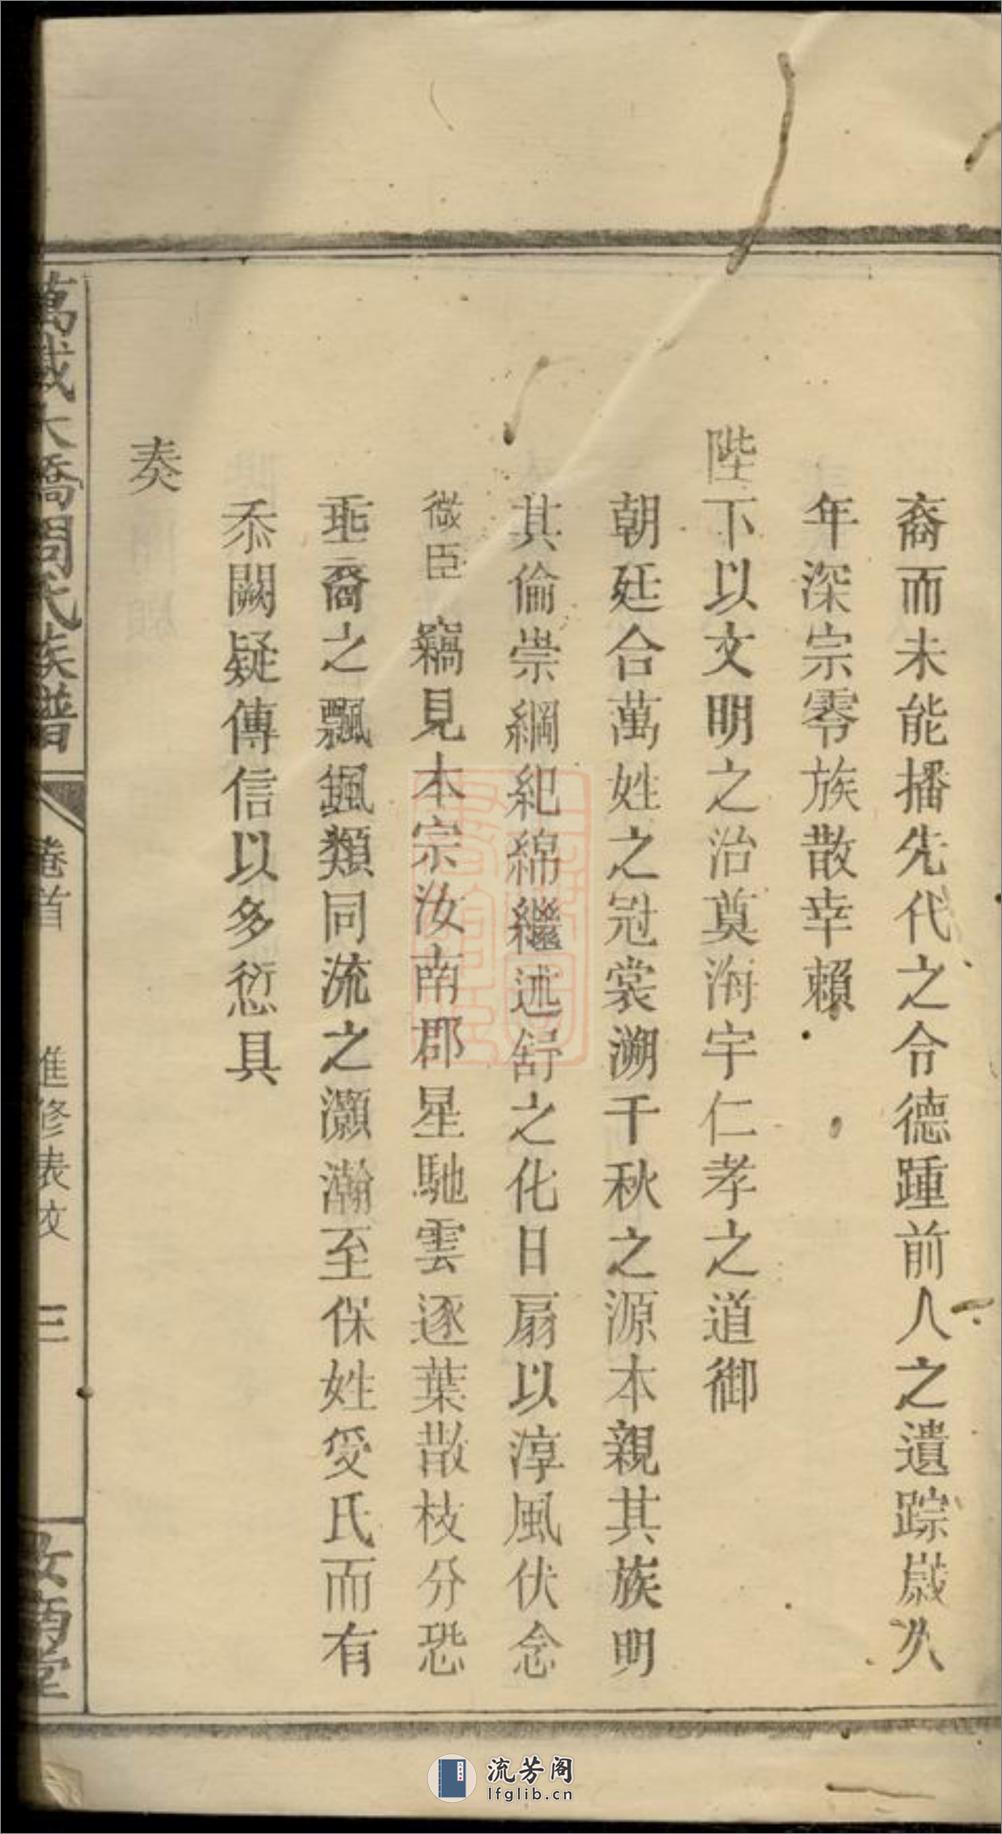 裔而未能播先代之令德踵前人之遺踪歲久
年深宗零族散幸賴
陛下以文明之治奠海宇仁孝之道御
朝廷合萬姓之冠裳溯千秋之源本親其族明
其倫崇綱紀綿繼述舒之化日扇以淳風伏念
微臣竊見本宗汝南郡星馳雲逐葉散枝分恐
乖裔之飄颻類同流之灝瀚至保姓受氏而有
忝闕疑傳信以多愆具
奏
萬載大橋周氏族譜
卷首
進修表文
三
汝南堂
流芳阁
lfglib.cn